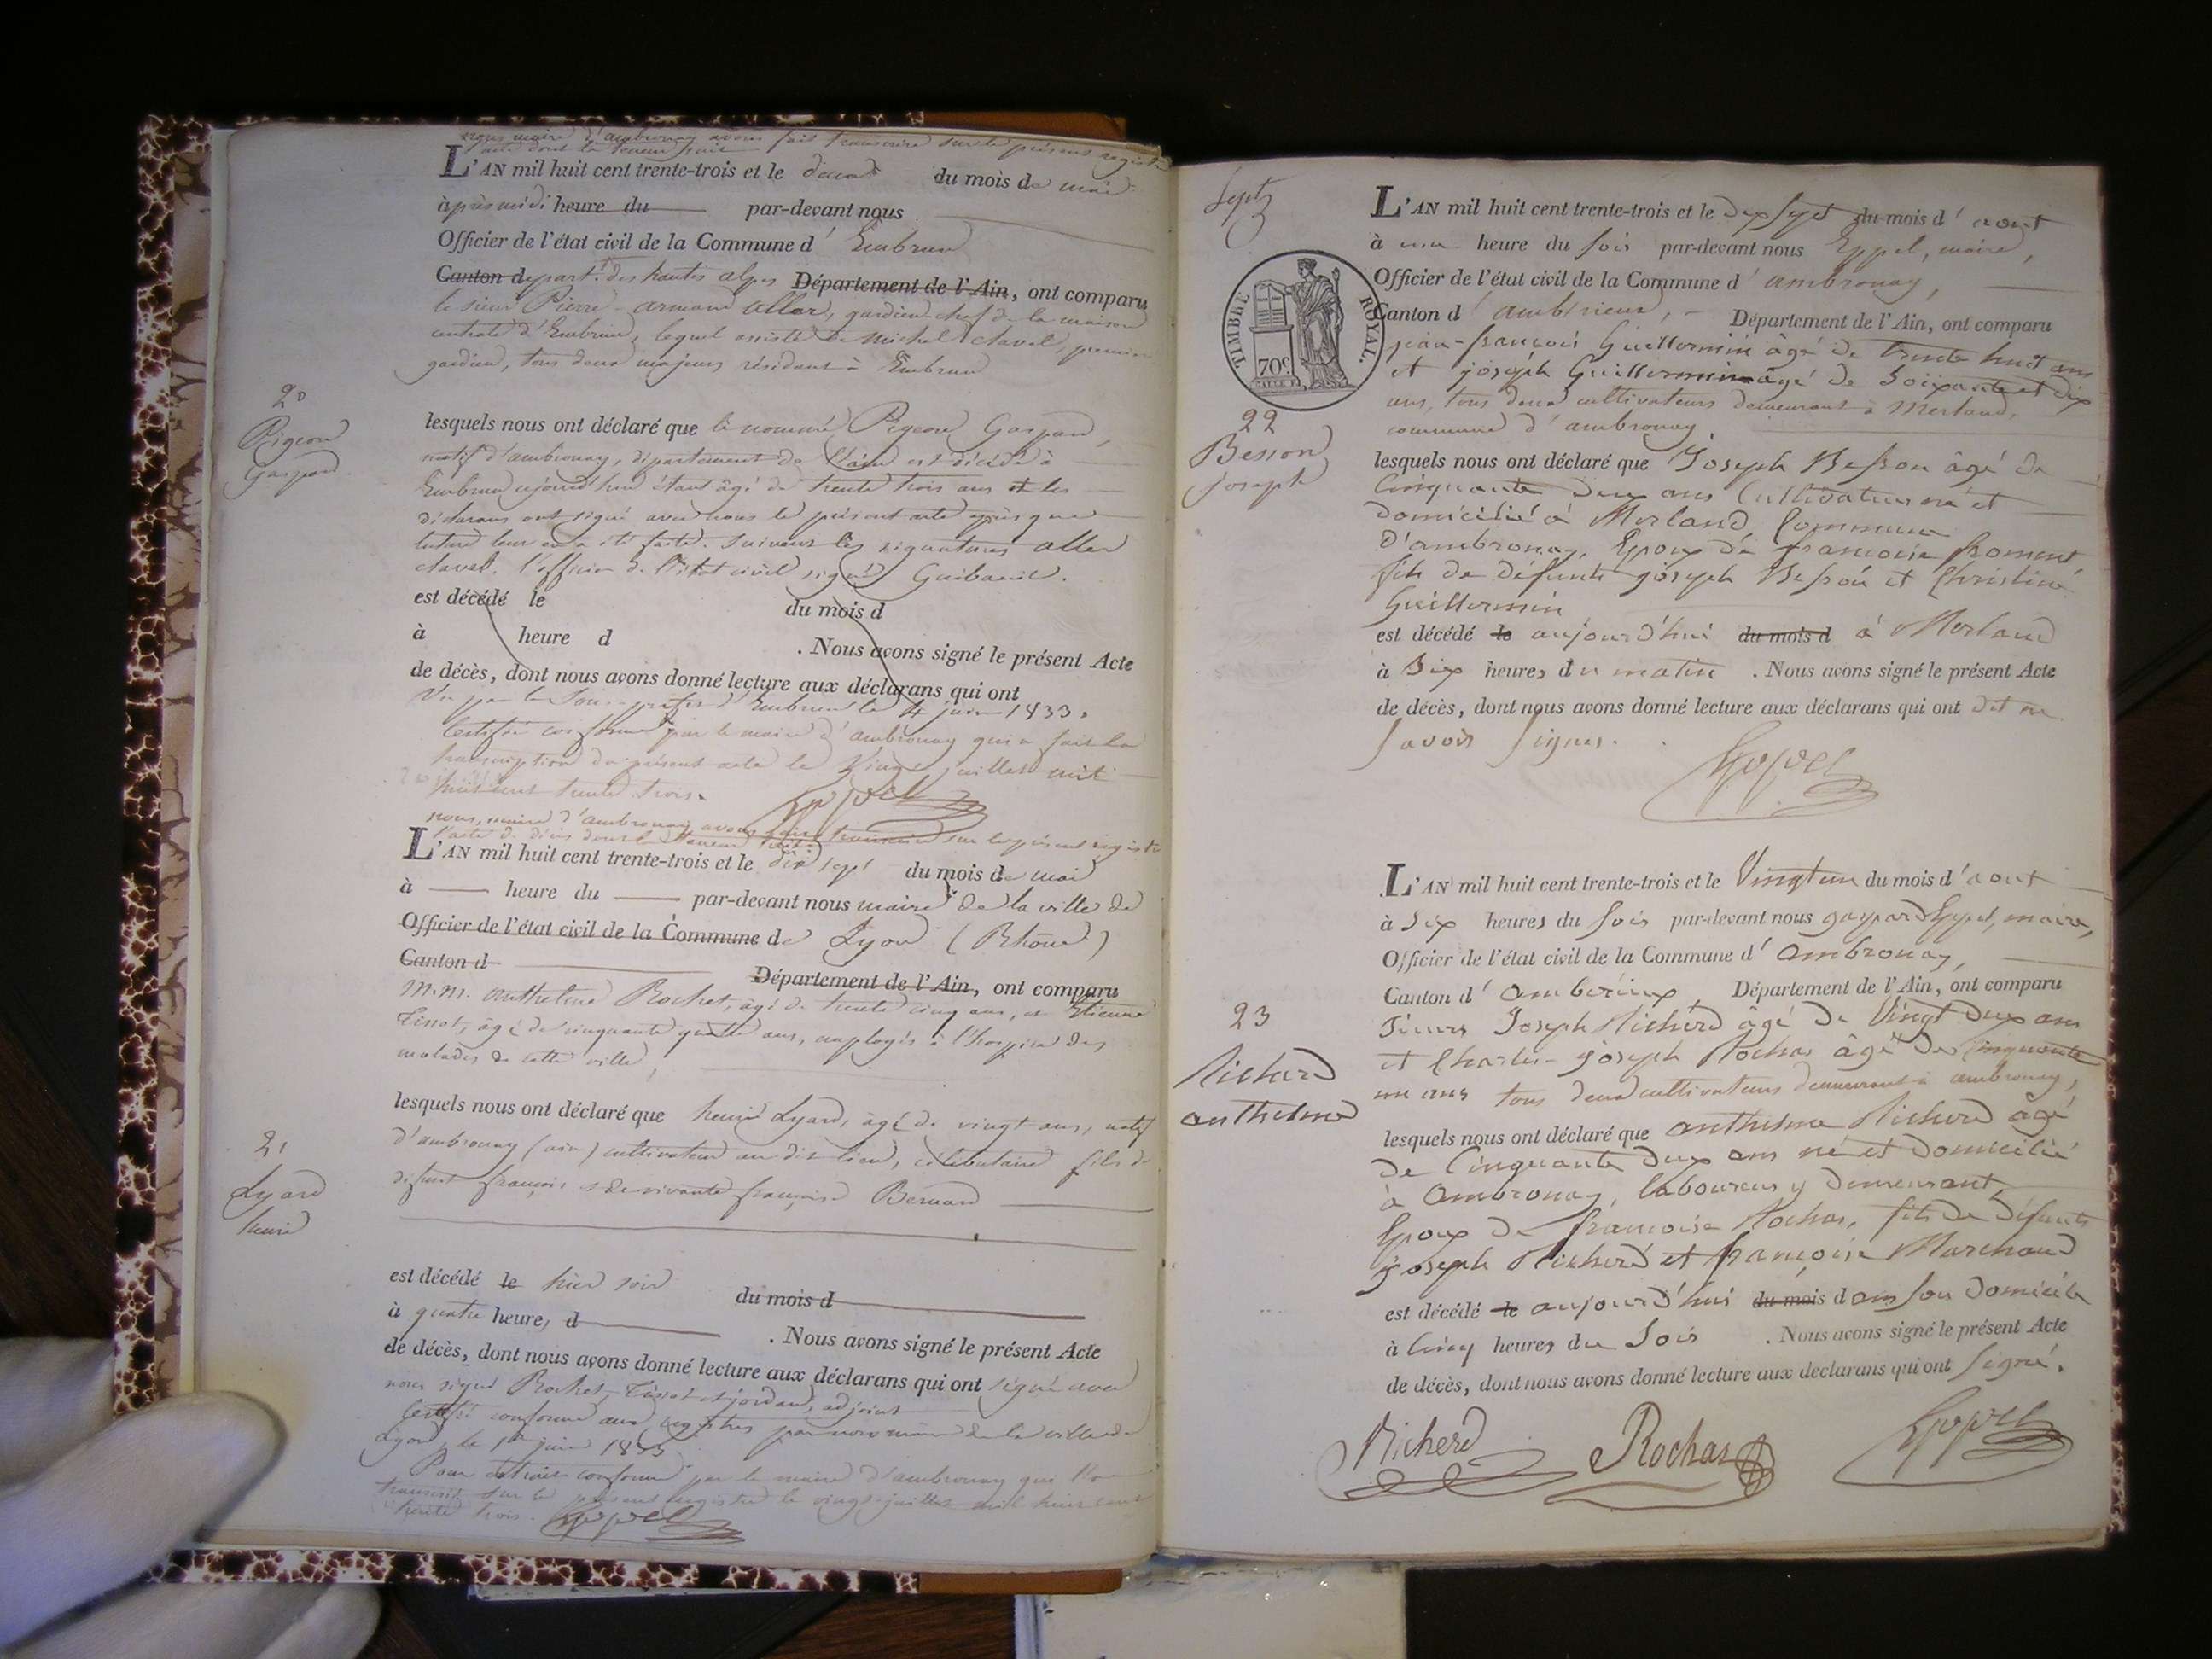 nous maire d'ambronay avons fait transcrire sur le présent registre
l'acte dont la teneur suit
L'AN mil huit cent trente-trois et le deux du mois de mai
après midi heure du par-devant nous
Officier de l'état civil de la Commune d' Embrun
Canton depart.t des hautes alpes Département de l'Ain, ont comparu
le sieur Pierre-armand allar, gardien-chef de la maison
centrale d'Embrun, lequel assisté de Michel Clavel, premier
gardien, tous deux majeurs résidant à Embrun
20
Pigeon
Gaspard
lesquels nous ont déclaré que le nommé Pigeon Gaspard,
natif d'ambronay, département de l'ain est décédé à
Embrun aujourd'hui étant âgé de trente trois ans et les
déclarans ont signé avec nous le présent acte après que
lecture leur en a été faite. suivent les signatures allar
clavel. l'officier de l'état civil signé
est décédé le du mois d
à heure d . Nous avons signé le présent Acte
de décès, dont nous avons donné lecture aux déclarans qui ont
Vu par le Sous-préfet d'Embrun le 4 juin 1833.
Certifié conforme par le maire d'ambronay qui a fait la
transcription du présent acte le vingt juillet mil
huit cent trente trois.
Eppel
nous, maire d'ambronay, avons fait transcrire sur le présent registre
l'acte de décès dont la teneur suit
L'AN mil huit cent trente-trois et le dix sept du mois de mai
à heure du par-devant nous maire de la ville de
Officier de l'état civil de la Commune de Lyon (Rhône)
Canton d Département de l'Ain, ont comparu
M.M. anthelme Rochet, âgé de trente cinq ans, et Etienne
Tissot, âgé de cinquante quatre ans, employés à l'hospice des
malades de cette ville,
21
Lyard
henri
lesquels nous ont déclaré que henri Lyard, âgé de vingt ans, natif
d'ambronay (ain) cultivateur au dit lieu, célibataire fils de
défunt françois & de vivante françoise Bernard
est décédé le hier soir du mois d
à quatre heures d . Nous avons signé le présent Acte
de décès, dont nous avons donné lecture aux déclarans qui ont signé avec
nous signé Rochet, Tissot et jordan, adjoint
Certifié conforme aux registres par nous maire de la ville de
Lyon, le 1er juin 1833
Pour extrait conforme par le maire d'ambronay qui l'a
transcrit sur le présent registre le vingt juillet mil huit cent
trente trois. Eppel
Sept
L'AN mil huit cent trente-trois et le dix sept du mois d' aout
à une heure du soir par-devant nous Eppel, maire,
Officier de l'état civil de la Commune d' ambronay,
Canton d' ambérieux, Département de l'Ain, ont comparu
TIMBRE ROYAL.
70c
jean-françois Guillermin âgé de trente huit ans
et joseph Guillermin âgé de Soixante et dix
ans, tous deux cultivateurs demeurant à Merland,
commune d'ambronay.
22
Besson
joseph
lesquels nous ont déclaré que Joseph Besson âgé de
Cinquante deux ans Cultivateur né et
domicilié à Merland, Commune
d'ambronay, Epoux de françoise froment,
fils de défunts joseph Besson et Christine
Guillermin
est décédé le aujourd'hui du mois d à Merland
à Six heures du matin . Nous avons signé le présent Acte
de décès, dont nous avons donné lecture aux déclarans qui ont dit ne
savoir signer.
Eppel
L'AN mil huit cent trente-trois et le Vingt un du mois d' aout
à Six heures du soir par-devant nous gaspard Eppel, maire,
Officier de l'état civil de la Commune d' ambronay,
Canton d' ambérieux, Département de l'Ain, ont comparu
Sieurs Joseph Richerd âgé de Vingt deux ans
et Charles-joseph Rochas âgé de Cinquante
un ans tous deux cultivateurs demeurant à ambronay,
23
Richard
anthelme
lesquels nous ont déclaré que anthelme Richerd âgé
de Cinquante deux ans né et domicilié
à Ambronay, laboureur y demeurant,
Epoux de françoise Rochas, fils de défunts
joseph Richerd et françoise Marchand
est décédé le aujourd'hui du mois dans son domicile
à Cinq heures du Soir . Nous avons signé le présent Acte
de décès, dont nous avons donné lecture aux déclarans qui ont signé.
Richerd Rochas Eppel